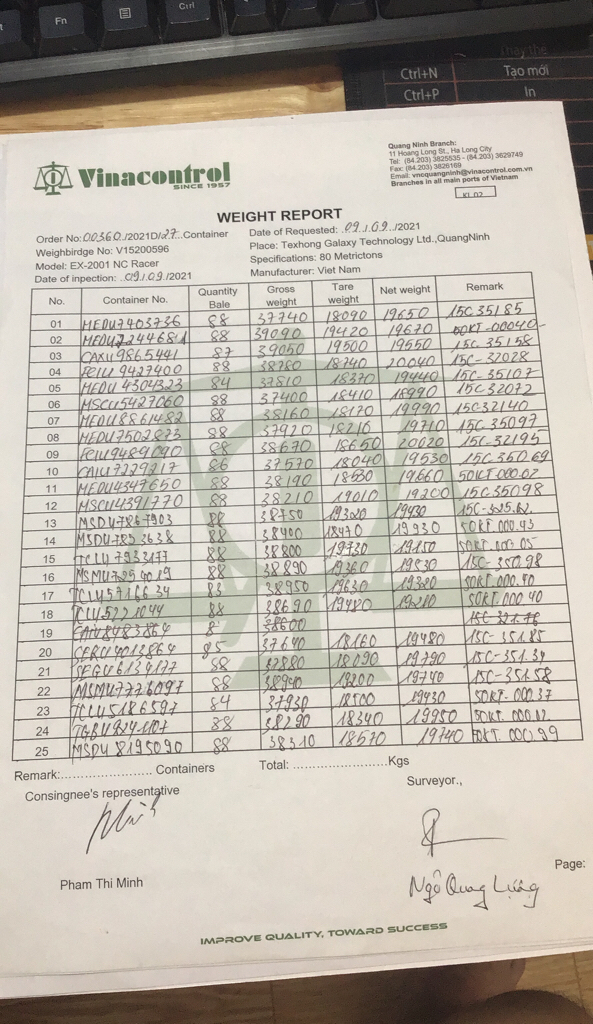 Ctrl
Fn
Thay thế
Ctrl+N Tạo mới
Ctrl+P In
Vinacontrol
SINCE 1957
Quang Ninh Branch:
11 Hoang Long St., Ha Long City
Tel: (84.203) 3825535 - (84.203) 3629749
Fax: (84.203) 3826169
Email: vncquangninh@vinacontrol.com.vn
Branches in all main ports of Vietnam
KL 02
WEIGHT REPORT
Order No: 00360/2021D/27 Container Date of Requested: 09/09/2021
Weighbirdge No: V15200596 Place: Texhong Galaxy Technology Ltd.,QuangNinh
Model: EX-2001 NC Racer Specifications: 80 Metrictons
Date of inpection: 09/09/2021 Manufacturer: Viet Nam
No. Container No. Quantity Bale Gross weight Tare weight Net weight Remark
01 MEDU7403736 88 37740 18090 19650 15C 35185
02 88 39090 19420 19670
03 CAXU9865441 87 39050 19500 19550 15C-35158
04 FCIU9427400 88 38780 18740 20040 15C-32028
05 MEDU4304323 84 37810 18370 19440 15C-35107
06 MSCU5427060 88 37400 18410 18990 15C 32072
07 MEDU8861482 88 38160 18170 19990 15C32140
08 MEDU7502873 88 37920 18210 19710 15C-35097
09 FCIU9489090 88 38670 18650 20020 15C-32195
10 CAIU7229217 86 37570 18040 19530 15C 350 69
11 MEDU4347650 88 38190 18530 19660 50KT 000.02
12 MSCU4391770 88 38210 19010 19200 15C 35098
13 88 38750 19320 19430
14 88 38400 18470 19930 50KT.000.43
15 TCLU7933177 88 38800
16 88 38890 19360 19530 15C-350.98
17 83 38950 19630 19320
18 TCLU5221044 88 38690 19480 19210 50KT 000.40
19 38600
20 85 37640 18160 19480 15C-351.85
21 SEGU6134177 88 37880 18090 19790 15C-351.34
22 MSMU7726097 88 38940 19200 19740 15C-351.58
23 TCLU5186597 84 37930 18500 19430 50KT.000.37
24 88 38290 18340 19950
25 MSDU8195090 88 38310 18570 19740 50KT.000.99
Remark:........................ Containers Total: ........................Kgs
Consingnee's representative Surveyor.,
Pham Thi Minh
Page:
Ngô Quang Lượng
IMPROVE QUALITY, TOWARD SUCCESS